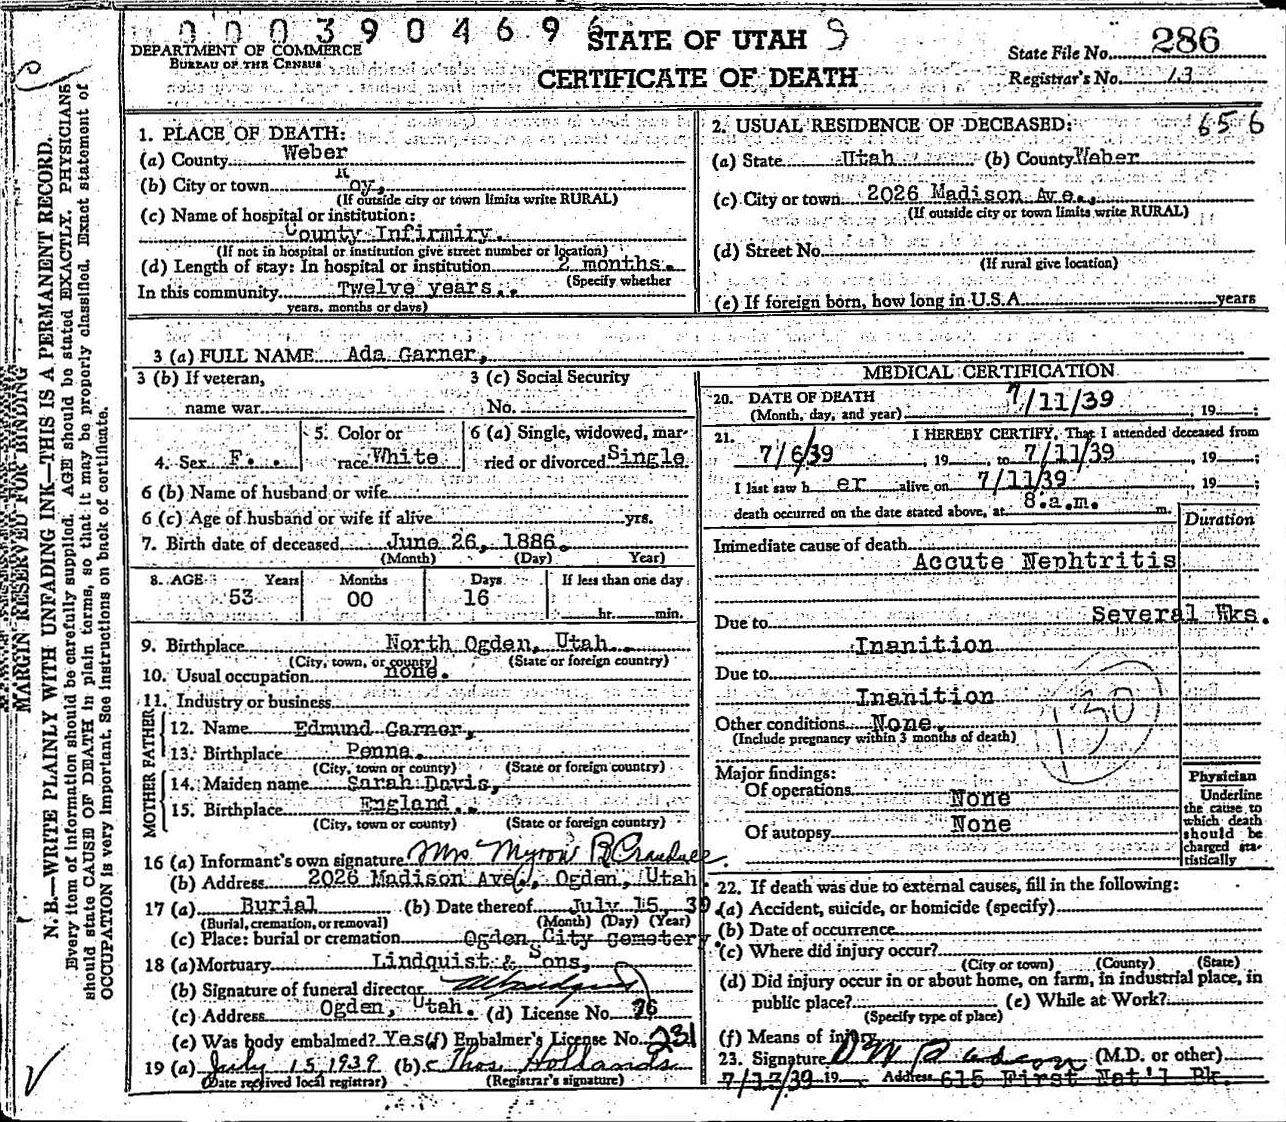 0003904696
STATE OF UTAH 9
DEPARTMENT OF COMMERCE
BUREAU OF THE CENSUS
CERTIFICATE OF DEATH
State File No. 286
Registrar's No. 13
MARGIN RESERVED FOR BINDING
N. B.—WRITE PLAINLY WITH UNFADING INK—THIS IS A PERMANENT RECORD.
Every item of information should be carefully supplied. AGE should be stated EXACTLY. PHYSICIANS
should state CAUSE OF DEATH in plain terms, so that it may be properly classified. Exact statement of
OCCUPATION is very important. See instructions on back of certificate.
1. PLACE OF DEATH:
(a) County Weber
(b) City or town Roy,
(If outside city or town limits write RURAL)
(c) Name of hospital or institution:
County Infirmiry.
(If not in hospital or institution give street number or location)
(d) Length of stay: In hospital or institution 2 months.
(Specify whether
In this community Twelve years..
years, months or days)
2. USUAL RESIDENCE OF DECEASED: 656
(a) State Utah (b) County Weber
(c) City or town 2026 Madison Ave.,
(If outside city or town limits write RURAL)
(d) Street No.
(If rural give location)
(e) If foreign born, how long in U.S.A. years
3 (a) FULL NAME Ada Garner,
3 (b) If veteran, 3 (c) Social Security
name war No.
4. Sex F. 5. Color or race White 6 (a) Single, widowed, married or divorced Single
6 (b) Name of husband or wife
6 (c) Age of husband or wife if alive yrs.
7. Birth date of deceased June 26, 1886.
(Month) (Day) Year)
8. AGE Years Months Days If less than one day
53 00 16 hr. min.
9. Birthplace North Ogden, Utah.
(City, town, or county) (State or foreign country)
10. Usual occupation none.
11. Industry or business
FATHER
12. Name Edmund Garner,
13. Birthplace Penna.
(City, town or county) (State or foreign country)
MOTHER
14. Maiden name Sarah Davis,
15. Birthplace England..
(City, town or county) (State or foreign country)
16 (a) Informant's own signature Mrs Myron R
(b) Address 2026 Madison Ave., Ogden, Utah.
17 (a) Burial (b) Date thereof July 15, 39.
(Burial, cremation, or removal) (Month) (Day) (Year)
(c) Place: burial or cremation Ogden City Cemetery.
18 (a) Mortuary Lindquist & Sons,
(b) Signature of funeral director
(c) Address Ogden, Utah. (d) License No. 76
(e) Was body embalmed? Yes (f) Embalmer's License No. 231
19 (a) July 15 1939 (b) Thos. Hollands
(Date received local registrar) (Registrar's signature)
MEDICAL CERTIFICATION
20. DATE OF DEATH 7/11/39
(Month, day, and year) , 19 ;
21. I HEREBY CERTIFY, That I attended deceased from
7/6/39 , 19 , to 7/11/39 , 19 ;
I last saw h er alive on 7/11/39 , 19 ;
death occurred on the date stated above, at 8:a.m. m.
Duration
Immediate cause of death
Accute Nephtritis
Due to Several Wks.
Inanition
Due to
Inanition
Other conditions None.
(Include pregnancy within 3 months of death)
130
Major findings:
Of operations None
Of autopsy None
Physician
Underline
the cause to
which death
should be
charged sta-
tistically
22. If death was due to external causes, fill in the following:
(a) Accident, suicide, or homicide (specify)
(b) Date of occurrence
(c) Where did injury occur?
(City or town) (County) (State)
(d) Did injury occur in or about home, on farm, in industrial place, in
public place? (e) While at Work?
(Specify type of place)
(f) Means of injury
23. Signature (M.D. or other)
7/17/39 19 Address 615 First Nat'l Bk.